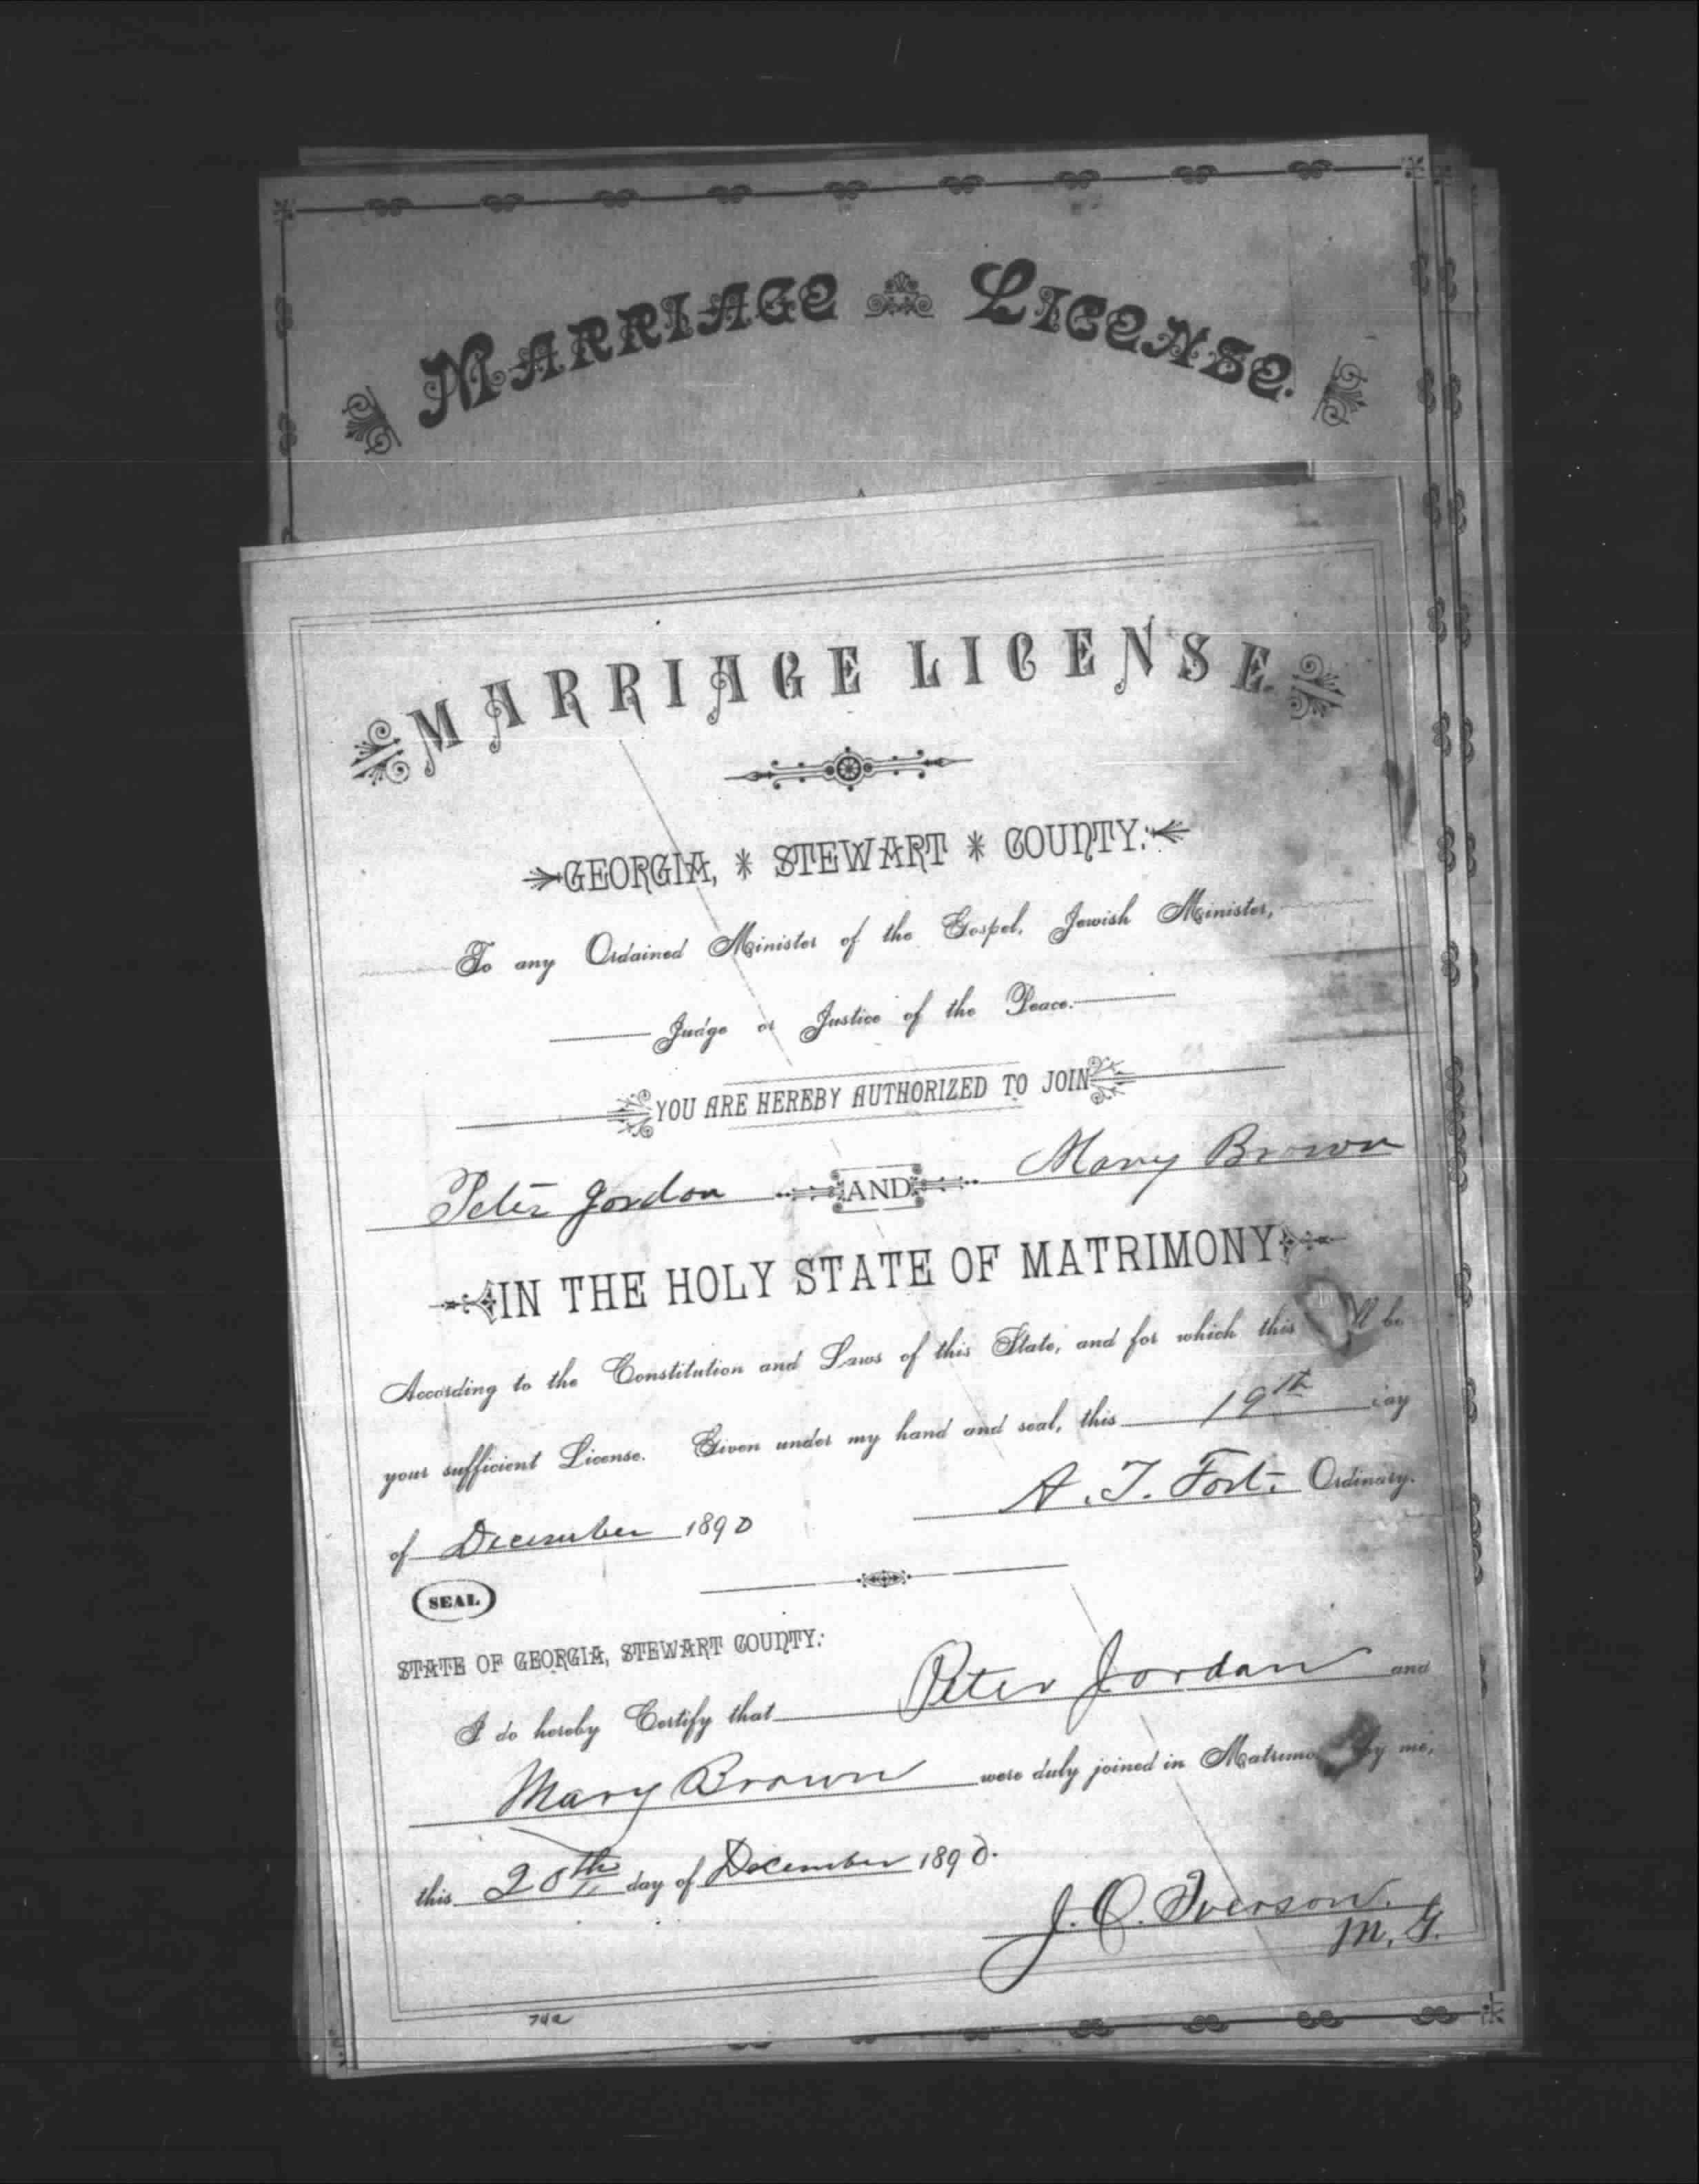 MARRIAGE LICENSE.
MARRIAGE LICENSE.
GEORGIA, * STEWART * COUNTY:
To any Ordained Minister of the Gospel, Jewish Minister,
Judge or Justice of the Peace.
YOU ARE HEREBY AUTHORIZED TO JOIN
Peter Jordon AND Mary Brown
IN THE HOLY STATE OF MATRIMONY
According to the Constitution and Laws of this State, and for which this ll be
your sufficient License. Given under my hand and seal, this 19th day
of December 1890 A. T. Fort Ordinary.
SEAL
STATE OF GEORGIA, STEWART COUNTY:
I do hereby Certify that Peter Jordan and
Mary Brown were duly joined in Matrimo by me,
this 20th day of December 1890.
J. O. Iverson.
M. G.
74a